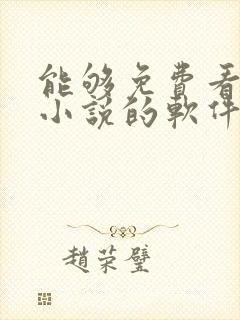 能够免費看
小説的軟件
趙荣璧